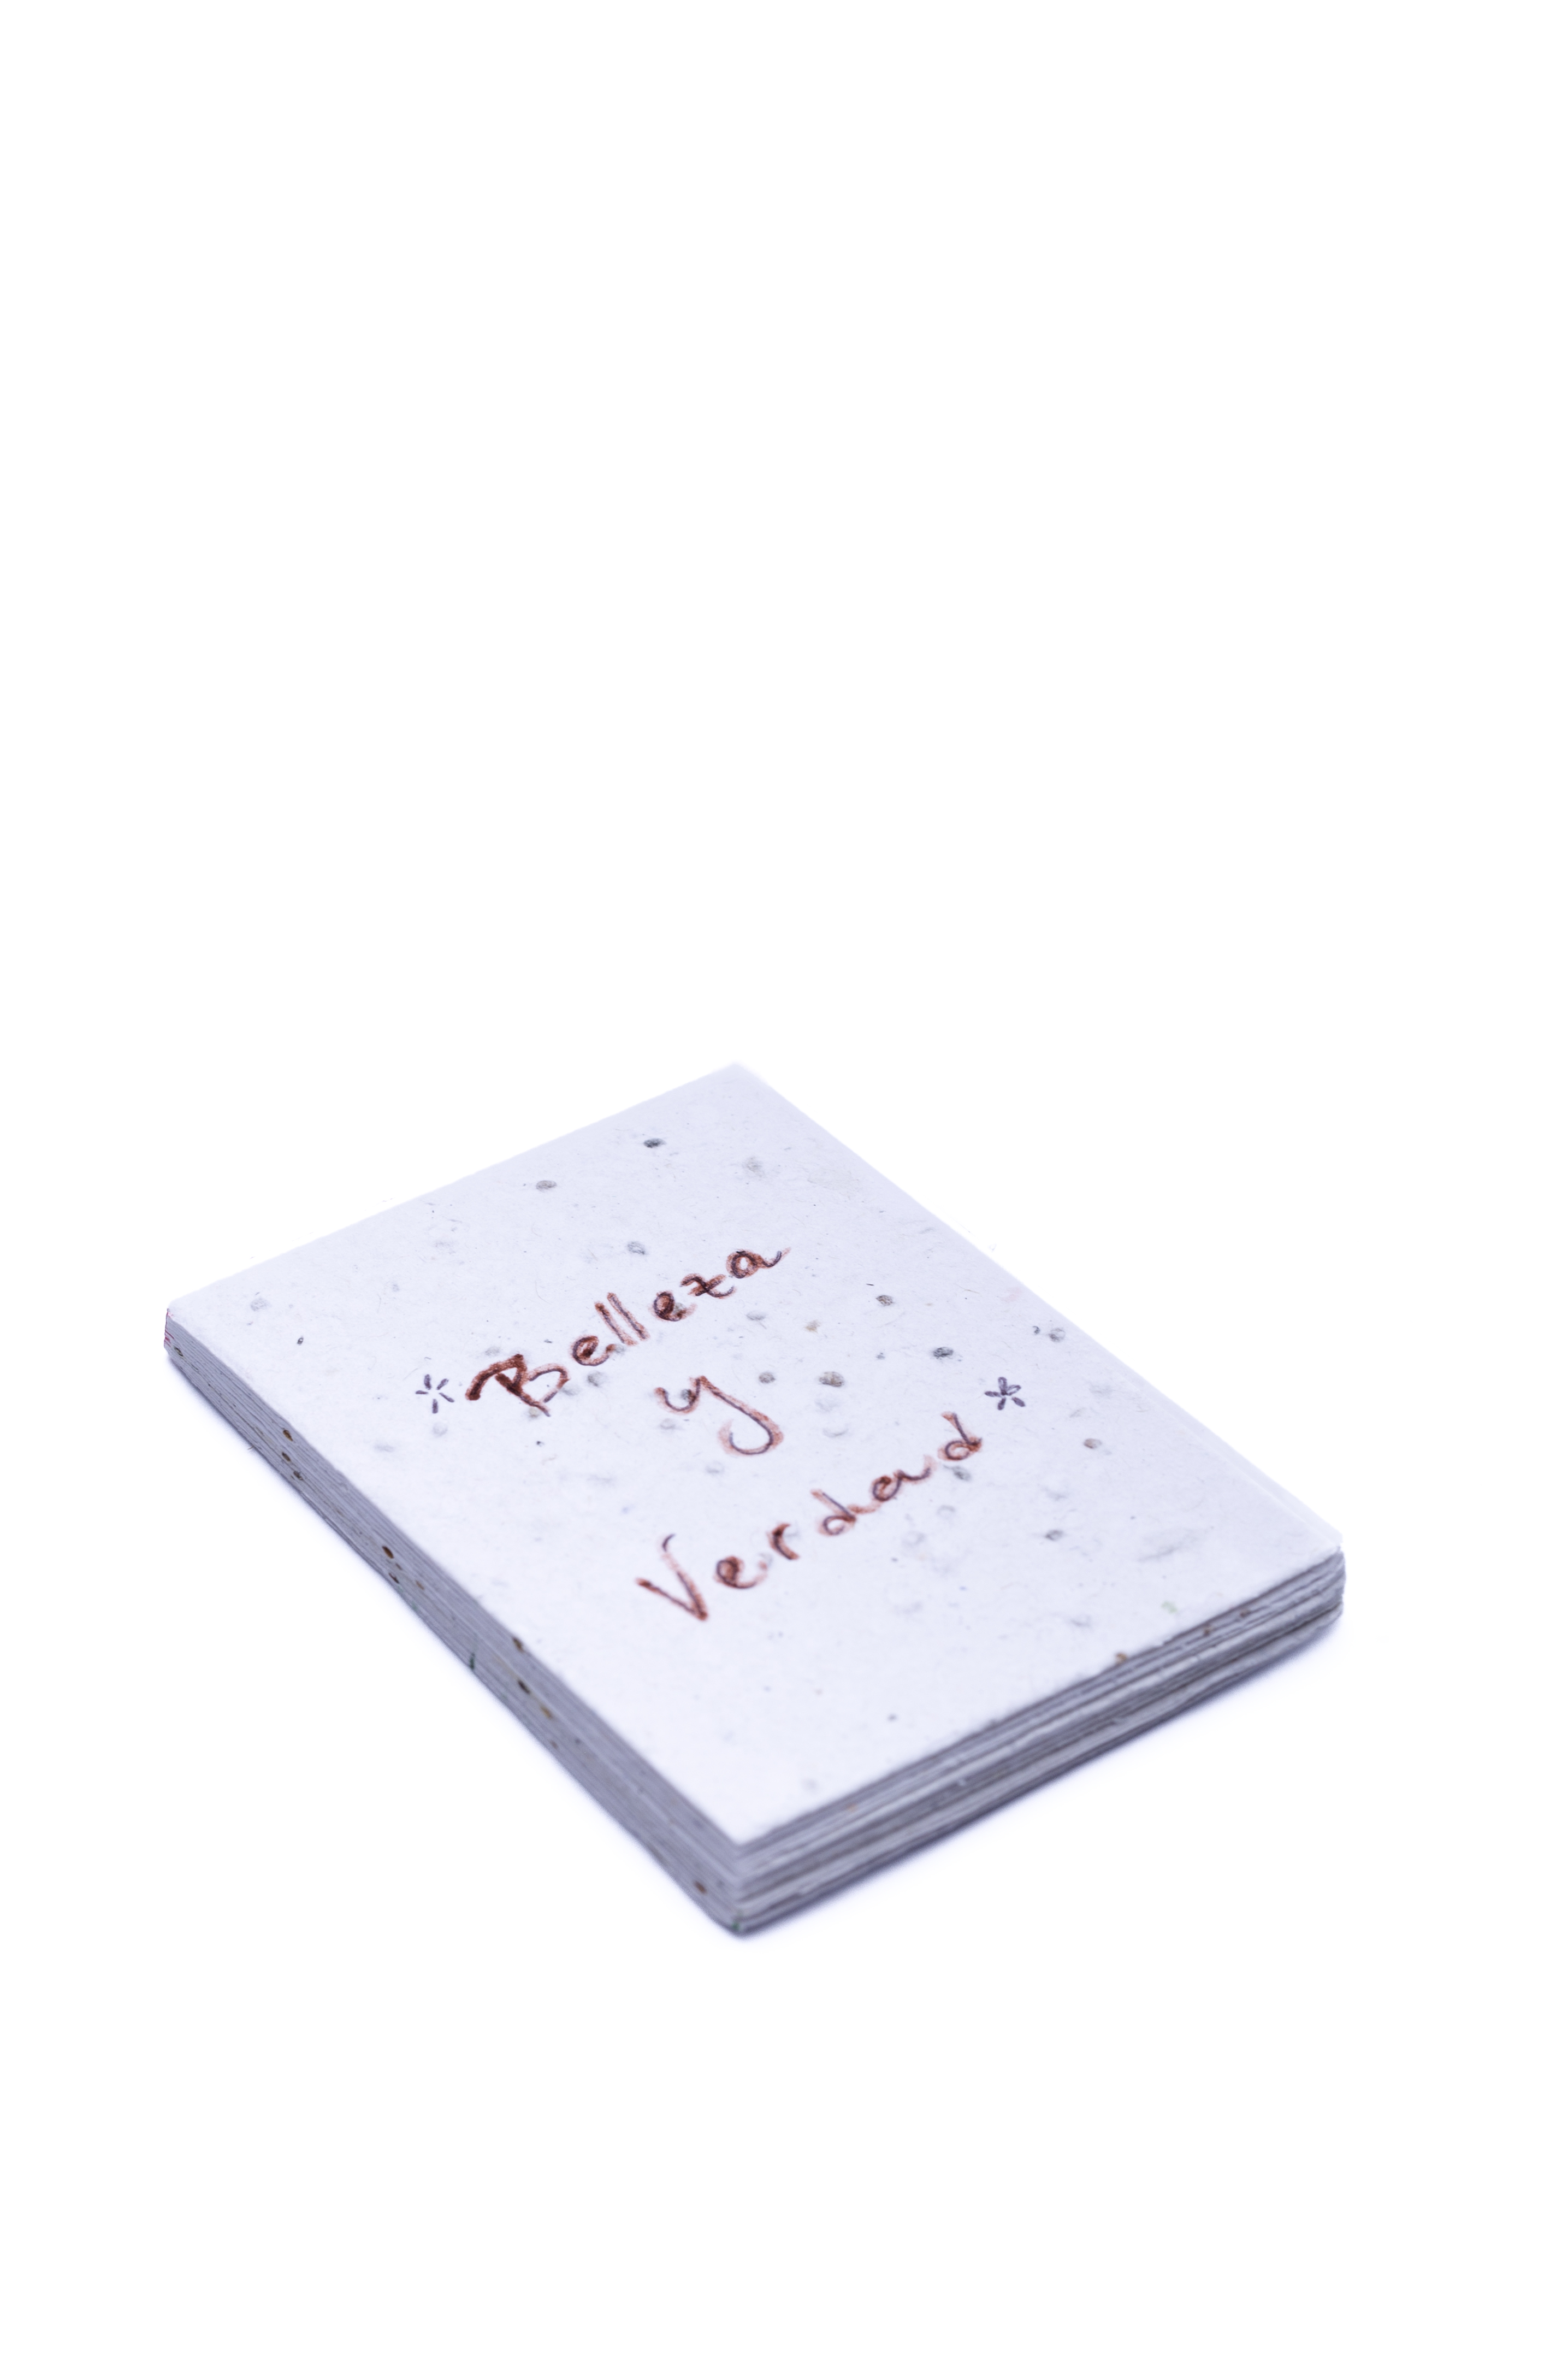 *Belleza
y
Verdad*